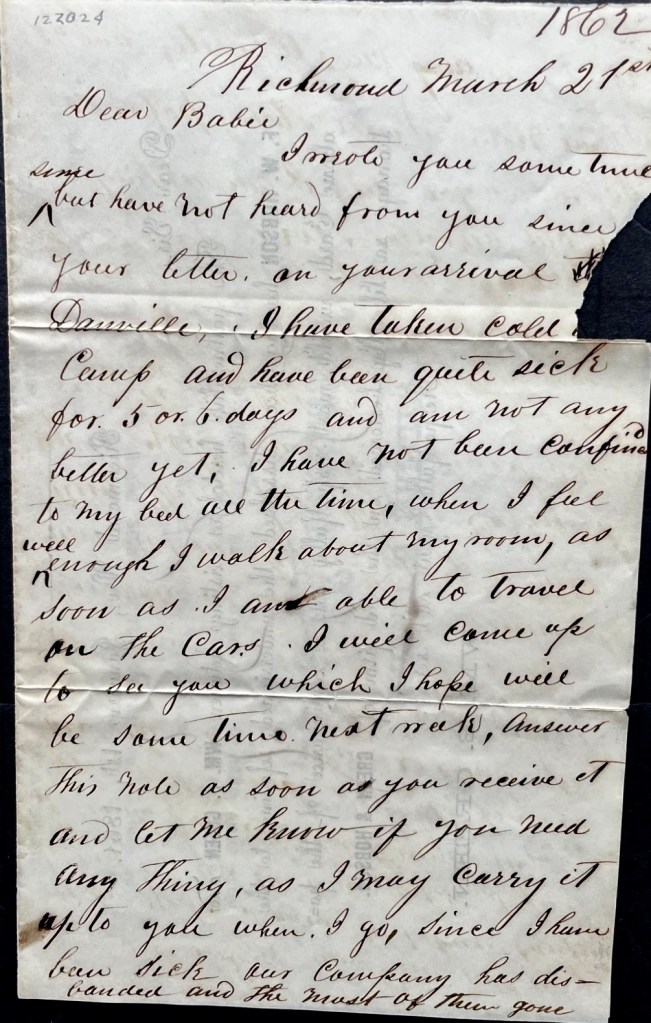 122024
1862
Richmond March 21st
Dear Babie
I wrote you some time
since
but have not heard from you since
your letter. on your arrival
Danville, I have taken cold
Camp and have been quite sick
for. 5 or. 6. days and am not any
better yet, I have not been confind
to my bed all the time, when I feel
well
enough I walk about my room, as
soon as I am able to travel
on the Cars. I will come up
to see you which I hope will
be some time next week, answer
this note as soon as you receive it
and let me know if you need
any thing, as I may carry it
up to you when. I go, since I have
been sick our Company has dis-
banded and the most of them gone